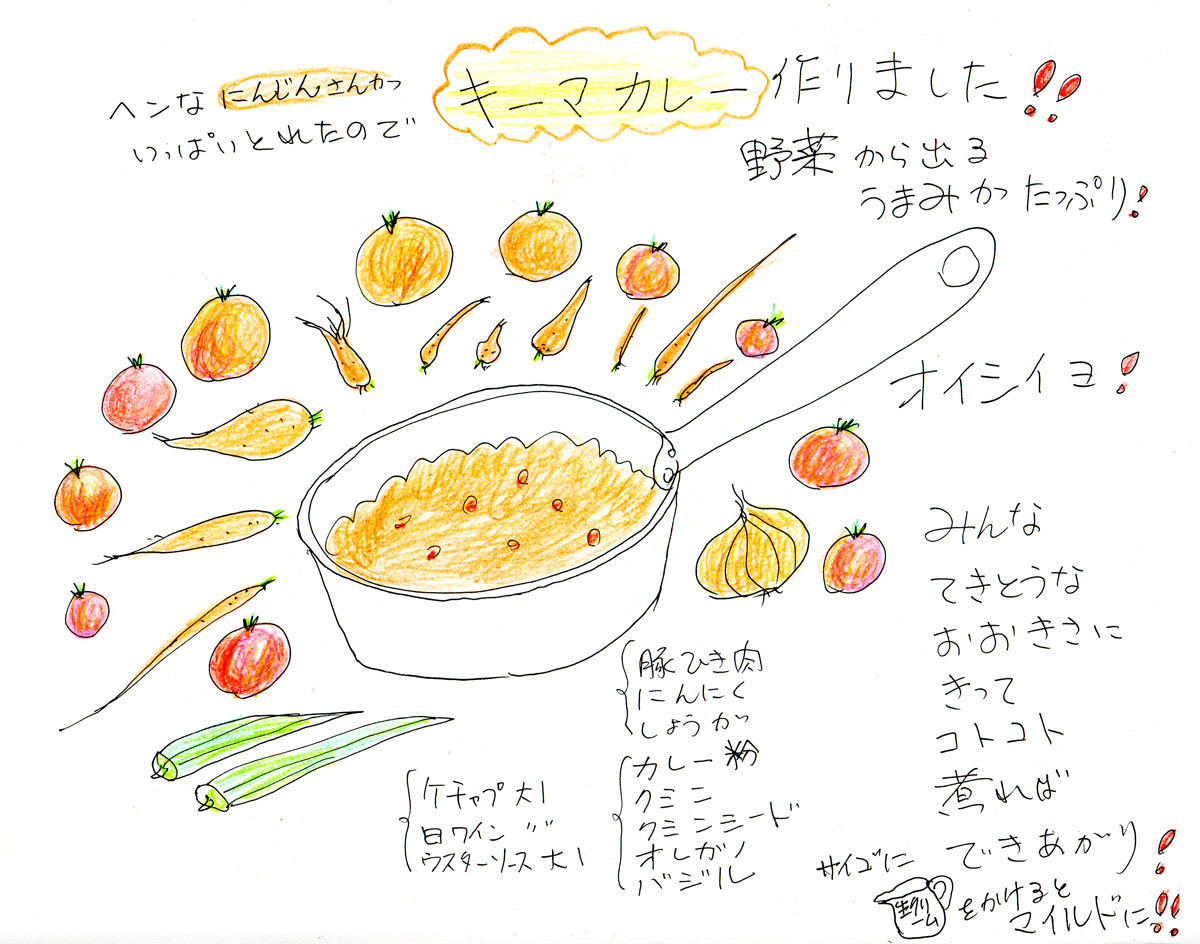 ヘンな にんじんさんが
いっぱいとれたので
キーマカレー 作りました!!
野菜 から出る
うまみが たっぷり!
オイシイヨ!
みんな
てきとうな
おおきさに
きって
コトコト
煮れば
できあがり!
サイゴに
生クリーム
をかけると
マイルドに!!
豚ひき肉
にんにく
しょうが
カレー粉
クミン
クミンシード
オレガノ
バジル
ケチャップ 大1
白ワイン 〃
ウスターソース 大1